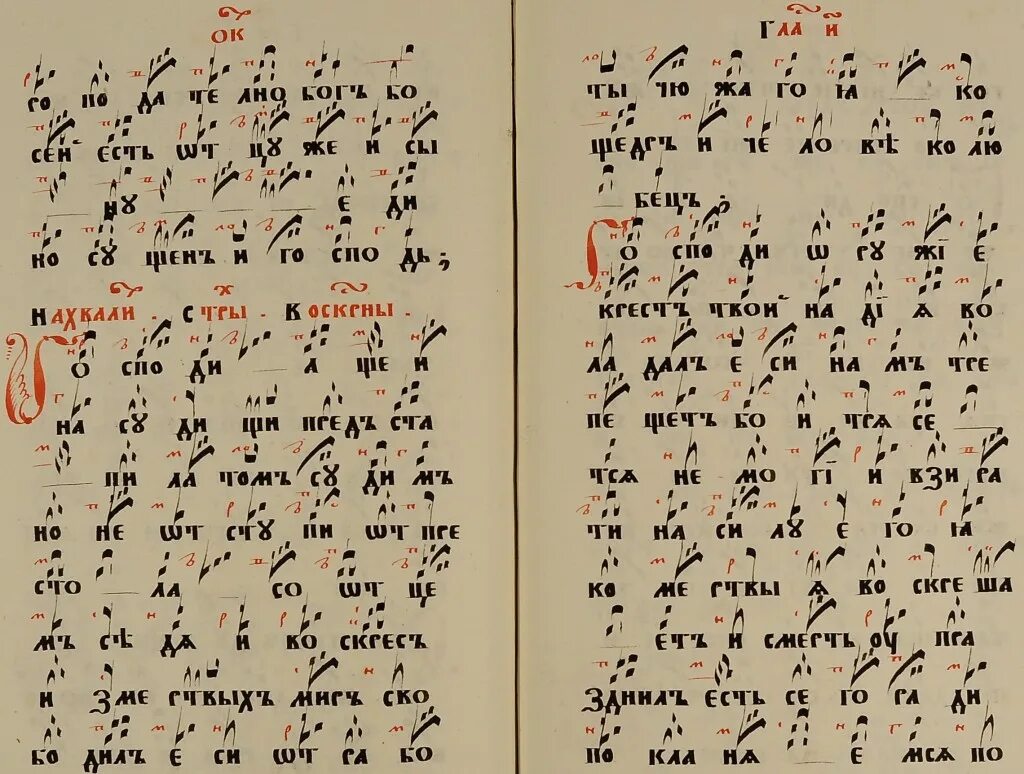 ОК
го по да че ано богъ бо
сей есть ѿт цу же и сы
ну е ди
но су щен и го сподь;
На хвали. стры. воскрны.
Го спо ди а ще и
на су ди щи предъ ста
пи ла том су ди мъ
но не ѿт сту пи ѿт пре
сто ла со ѿт це
мъ сѣ дя и во скресъ
и зме ртвыхъ миръ сво
бо дилъ е си ѿт ра бо
Гла и҃
ты чю жа го ꙗ ко
щедръ и че ло вѣ ко лю
бецъ;
Го спо ди ѡ ру жї е
крестъ твой на дїя во
ла далъ е си на мъ тре
пе щетъ бо и тря се
тся не мо гї и взи ра
ти на си лу е го ꙗ
ко ме ртвы я во скре ша
етъ и смерть оу пра
зднилъ есть се го ра ди
по кла ня е мся по